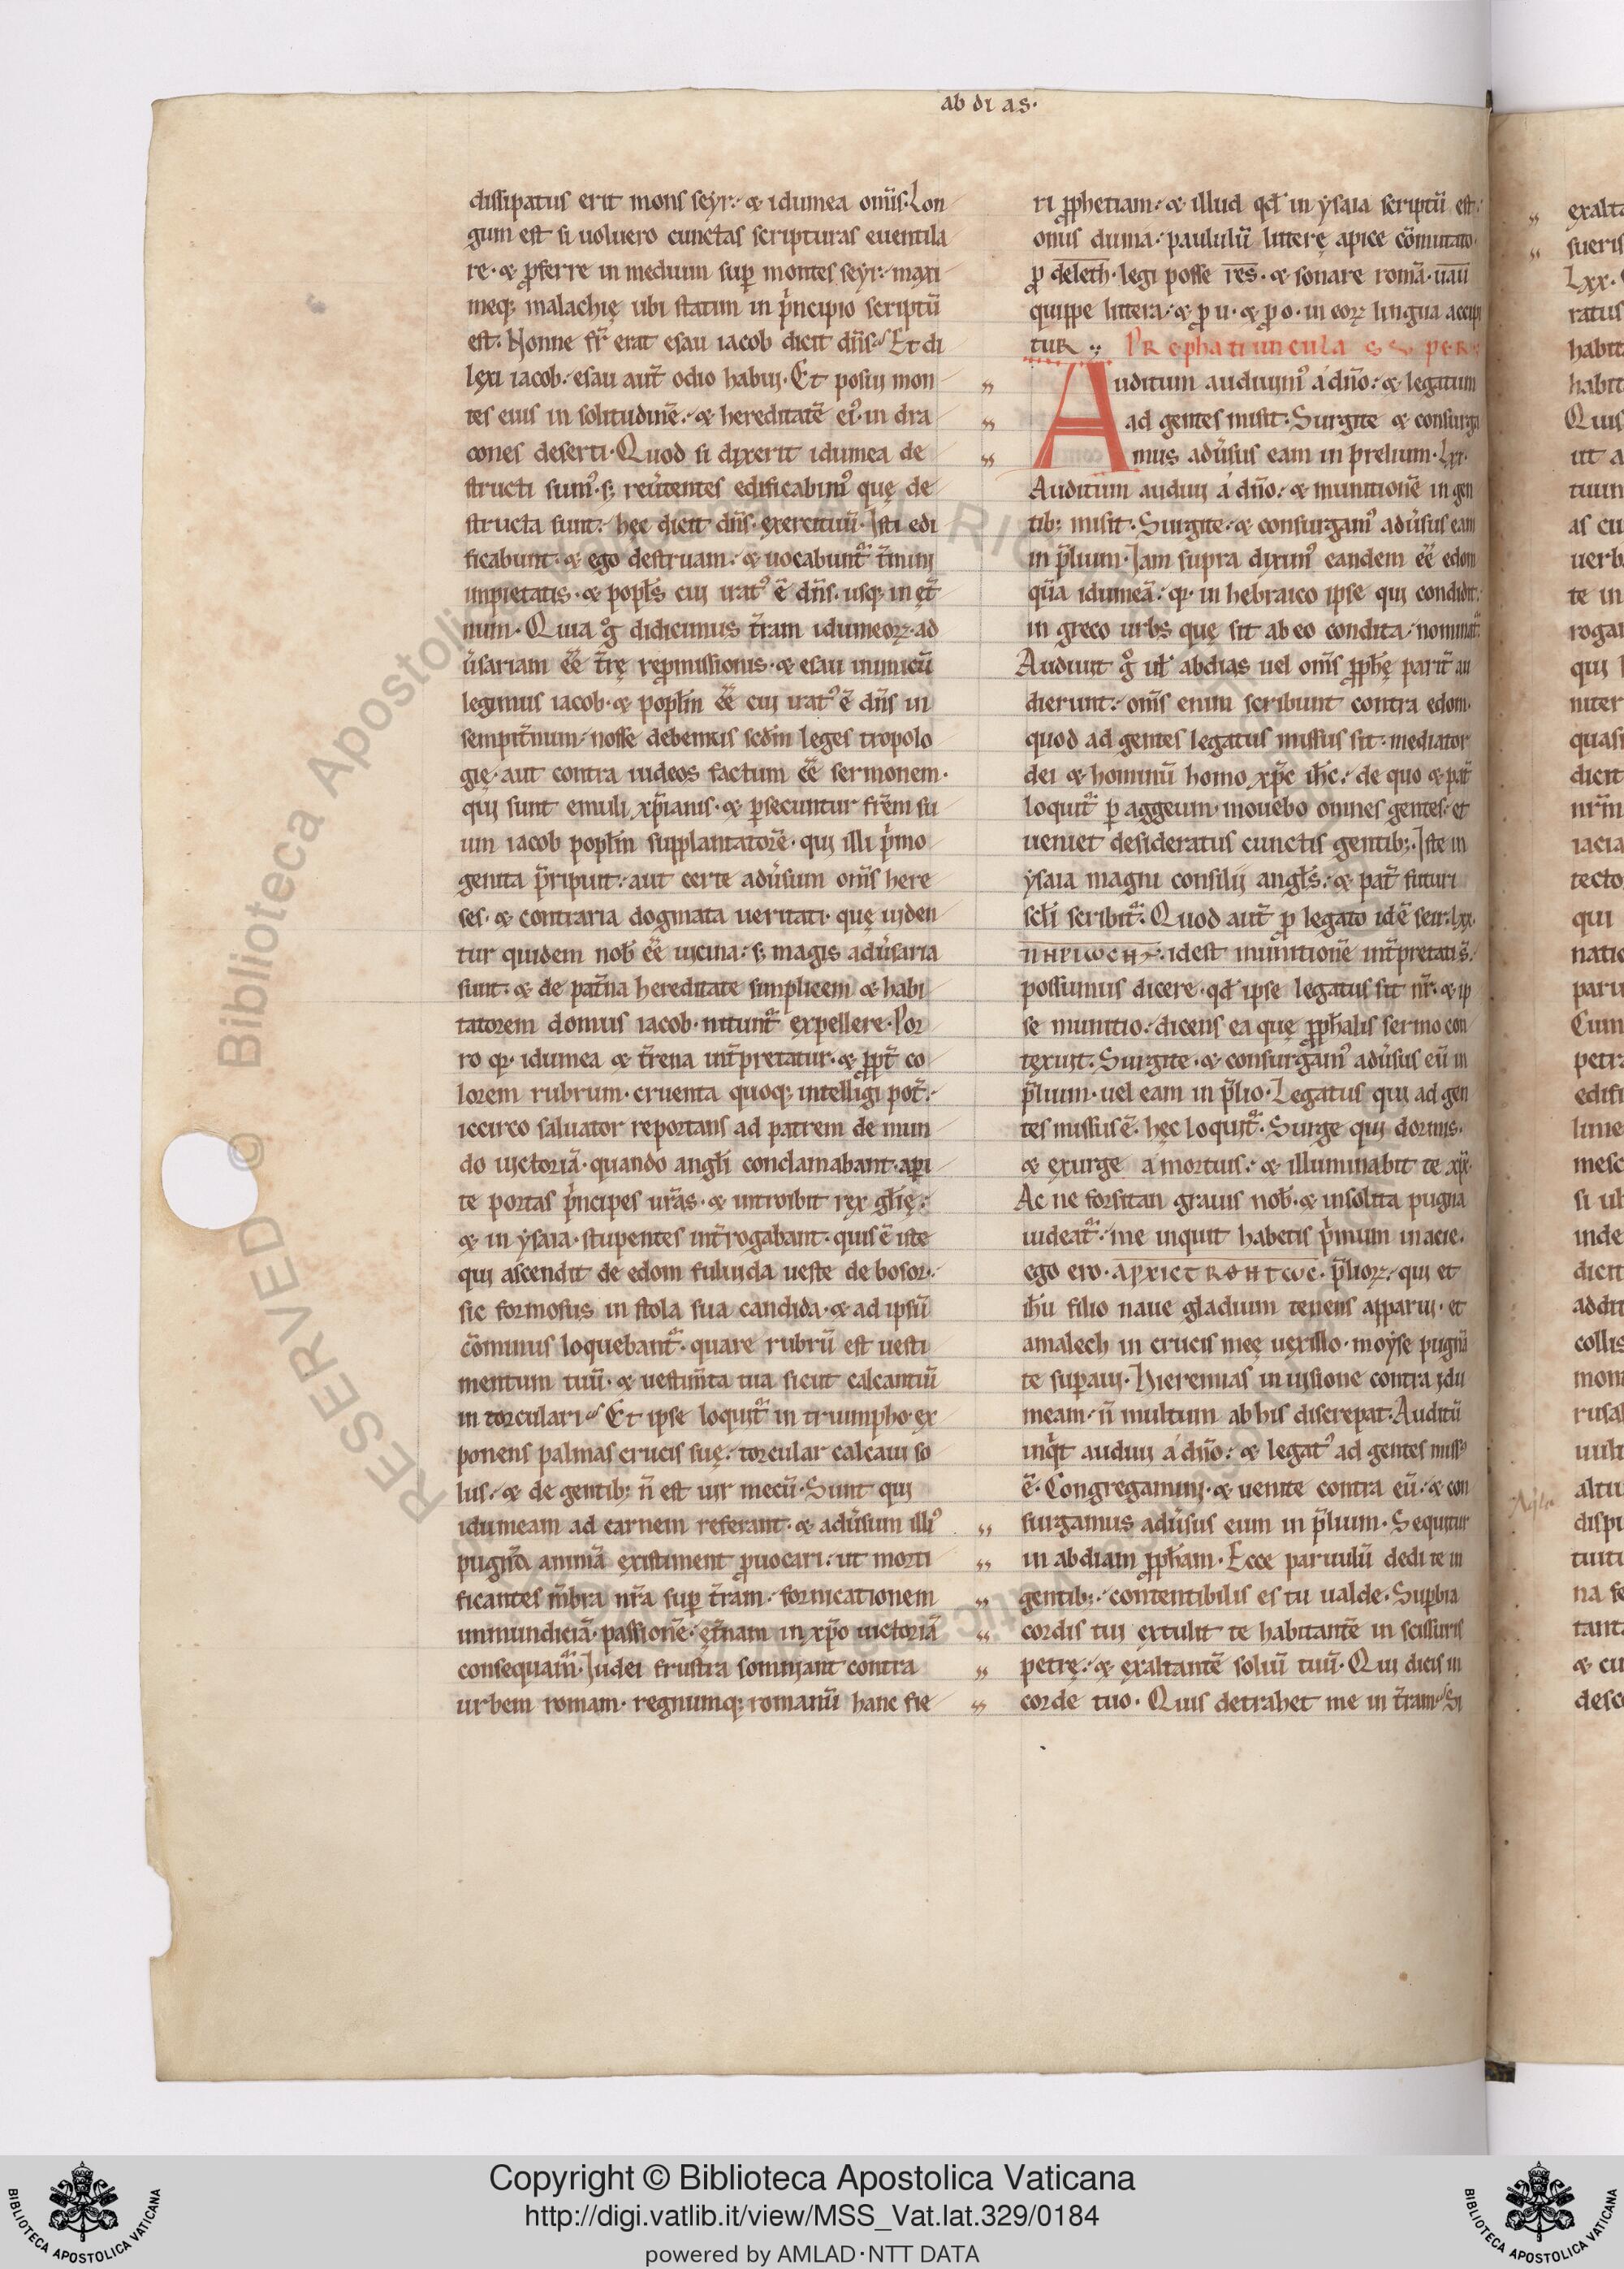 ab di as·
dissipatus erit mons seyr· & idumea om̄s· Lon
gum est si uoluero cunctas scripturas euentila
re· & ꝓferre in medium suꝑ montes seyr· maxi
meq; malachię ubi statim in pͥncipio scriptū
est· Nonne fr̄ erat esau iacob dicit dn̄s· Et di
lexi iacob· esau aut̄ odio habui· Et posui mon
tes eius in solitudinē· & hereditatē ei᾿ in dra
cones deserti· Quod si dixerit idumea de
structi sum᾿· s; reu̓tentes edificabim᾿ quę de
structa sunt· hęc dicit dn̄s exercituū· Isti edi
ficabunt· & ego destruam· & uocabunt᷑ t̄mini
impietatis· & popl̄s cui irat᾿ ē dn̄s usq; in ęt̄
num· Quia g̊ didicimus t̄ram idumeoꝝ· ad
u̓sariam ee̅ t̄rę reꝓmissionis· & esau inimicū
legimus iacob· & popl̄m ee̅ cui irat᾿ ē dn̄s in
sempit̄num· nosse debemus scd̄m leges tropolo
gię· aut contra iudeos factum ee̅ sermonem·
qui sunt emuli xp̄ianis· & ꝑsecuntur fr̄em su
um iacob popl̄m supplantatorē· qui illi pͥmo
genita p̄ripuit· aut certe adu̓sum om̄s here
ses· & contraria dogmata ueritati· quę uiden
tur quidem nob̄ ee̅ uicina· s; magis adu̓saria
sunt· & de pat̄na hereditate simplicem & habi
tatorem domus iacob· nitunt᷑ expellere· Por
ro qꝛ idumea & t̄rena int̄pretatur· & ꝓpt̄ co
lorem rubrum· cruenta quoq; intelligi pot̄·
iccirco saluator reportans ad patrem de mun
do uictoriā· quando angl̄i conclamabant· aperi
te portas pͥncipes ur̄as· & introibit rex gl̄ię·
& in ysaia· stupentes int̄rogabant· quis ē iste
qui ascendit de edom fuluida ueste de bosor·
sic formosus in stola sua candida· & ad ipsū
cōminus loquebant᷑· quare rubrū est uesti
mentum tuū· & uestim̄ta tua sicut calcantiū
in torculari· Et ipse loquit᷑ in triumpho· ex
ponens palmas crucis suę· torcular calcaui so
lus· & de gentib; n̄ est uir mecū· Sunt qui
idumeam ad carnem referant· & adu̓sum illi᾿
pugn̄ā animā existiment ꝓuocari· ut morti
ficantes m̄bra nr̄a suꝑ t̄ram· fornicationem
inmundiciā· passionē· ęt̄nam in xp̄o uictoriā
consequam᷑· Iudei frustra somniant contra
urbem romam· regnumq; romanū hanc fie
ri ꝓphetiam· & illud qd̄ in ysaia scriptū est·
onus duma· paululū litterę apice cōmutato·
ꝓ deleth· legi posse res· & sonare romā· uau
quippe littera· & ꝓ u· & ꝓ o· in eoꝝ lingua accipi
tur·
Auditum audiuim᾿ a dn̄o· & legatum
ad gentes misit· Surgite & consurga
mus adu̓sus eam in prelium· Lxx·
Auditum audiui a dn̄o· & munitionē in gen
tib; misit· Surgite· & consurgam᾿ adu̓sus eam
in p̄lium· Iam supra dixim᾿ eandem ee̅ edom
qu̅a idumeā· qꝛ in hebraico ipse qui condidit·
in greco urbs quę sit ab eo condita· nominat᷑·
Audiuit g̊ ul̄ abdias uel om̄s ꝓph̄ę parit̄ au
dierunt· om̄s enim scribunt contra edom·
quod ad gentes legatus missus sit· mediator
dei & hominū homo xp̄c ih̄c· de quo & pat̄
loquit᷑ ꝑ aggeum· mouebo omnes gentes· et
ueniet desideratus cunctis gentib;· Iste in
ysaia magni consilij angl̄s· & pat̄ futuri
scl̄i scribit᷑· Quod aut̄ ꝓ legato idē seir· lxx·
ΠΗΡΙѠCΗΝ· idest munitionē int̄pretati s̄·
possumus dicere· qd̄ ipse legatus sit nr̄· & ip
se munitio· dicens ea quę ꝓph̄alis sermo con
texuit· Surgite· & consurgam᾿ adu̓sus eū in
p̄lium· uel eam in p̄lio· Legatus qui ad gen
tes missus ē· hęc loquit᷑· Surge qui dormis·
& exurge a mortuis· & illuminabit te xp̄c·
Ac ne forsitan grauis nob̄· & insolita pugna
uideat᷑· me inquit habetis pͥmum in acie·
ego ero· ΑΡΧΙCΤΡΑΤΗΓѠC· p̄lioꝝ· qui et
ih̄u filio naue gladium tenens apparui· et
amalech in crucis meę uexillo· moyse pugn̄a
te suꝑaui· Hieremias in uisione contra idu
meam· n̄ multum ab his discrepat· Auditū
inqͥt audiui a dn̄o· & legat᾿ ad gentes miss᾿
ē· Congregamini· & uenite contra eū· & con
surgamus adu̓sus eum in p̄lium· Sequitur
in abdiam ꝓph̄am· Ecce paruulū dedi te in
gentib;· contentibilis es tu ualde· Suꝑbia
cordis tui extulit te habitantē in scissuris
petrę· & exaltantē soliū tuū· Qui dicis in
corde tuo· Quis detrahet me in t̄ram· Si
Copyright © Biblioteca Apostolica Vaticana
http://digi.vatlib.it/view/MSS_Vat.lat.329/0184
powered by AMLAD·NTT DATA
BIBLIOTECA APOSTOLICA VATICANA
BIBLIOTECA APOSTOLICA VATICANA